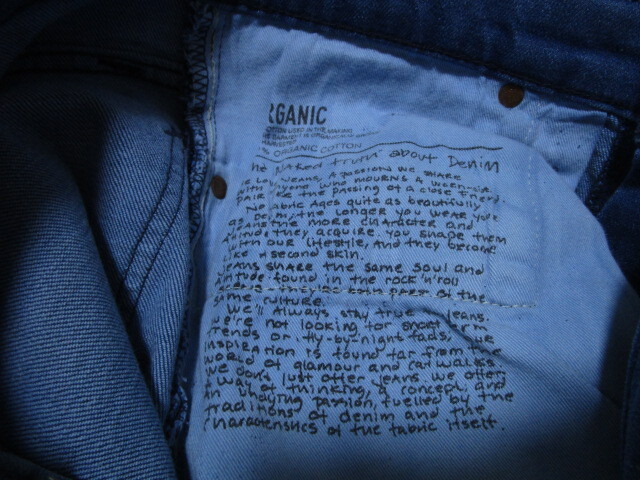 RGANIC
COTTON USED IN THE MAKING
GARMENT IS ORGANICALLY
HARVESTED
% ORGANIC COTTON
The Naked truth about Denim
Jeans, A passion we share
with anyone who mourns a worn-out
pair like the passing of a close friend.
No fabric Ages quite as beautifully
as Denim, the longer you wear your
jeans the more character and
Attitude they acquire. you shape them
with our lifestyle, And they become
like A second skin.
Jeans share the same soul and
attitude found in the rock'n'roll
they're both part of the
same culture.
We'll always stay true jeans.
We're not looking for short term
trends or fly-by-night fads,
inspiration is found far from the
world of glamour and catwalks.
we don't just offer jeans. we offer
a way of thinking, A concept, and
an undying passion, fuelled by the
traditions of denim and the
characteristics of the fabric itself.